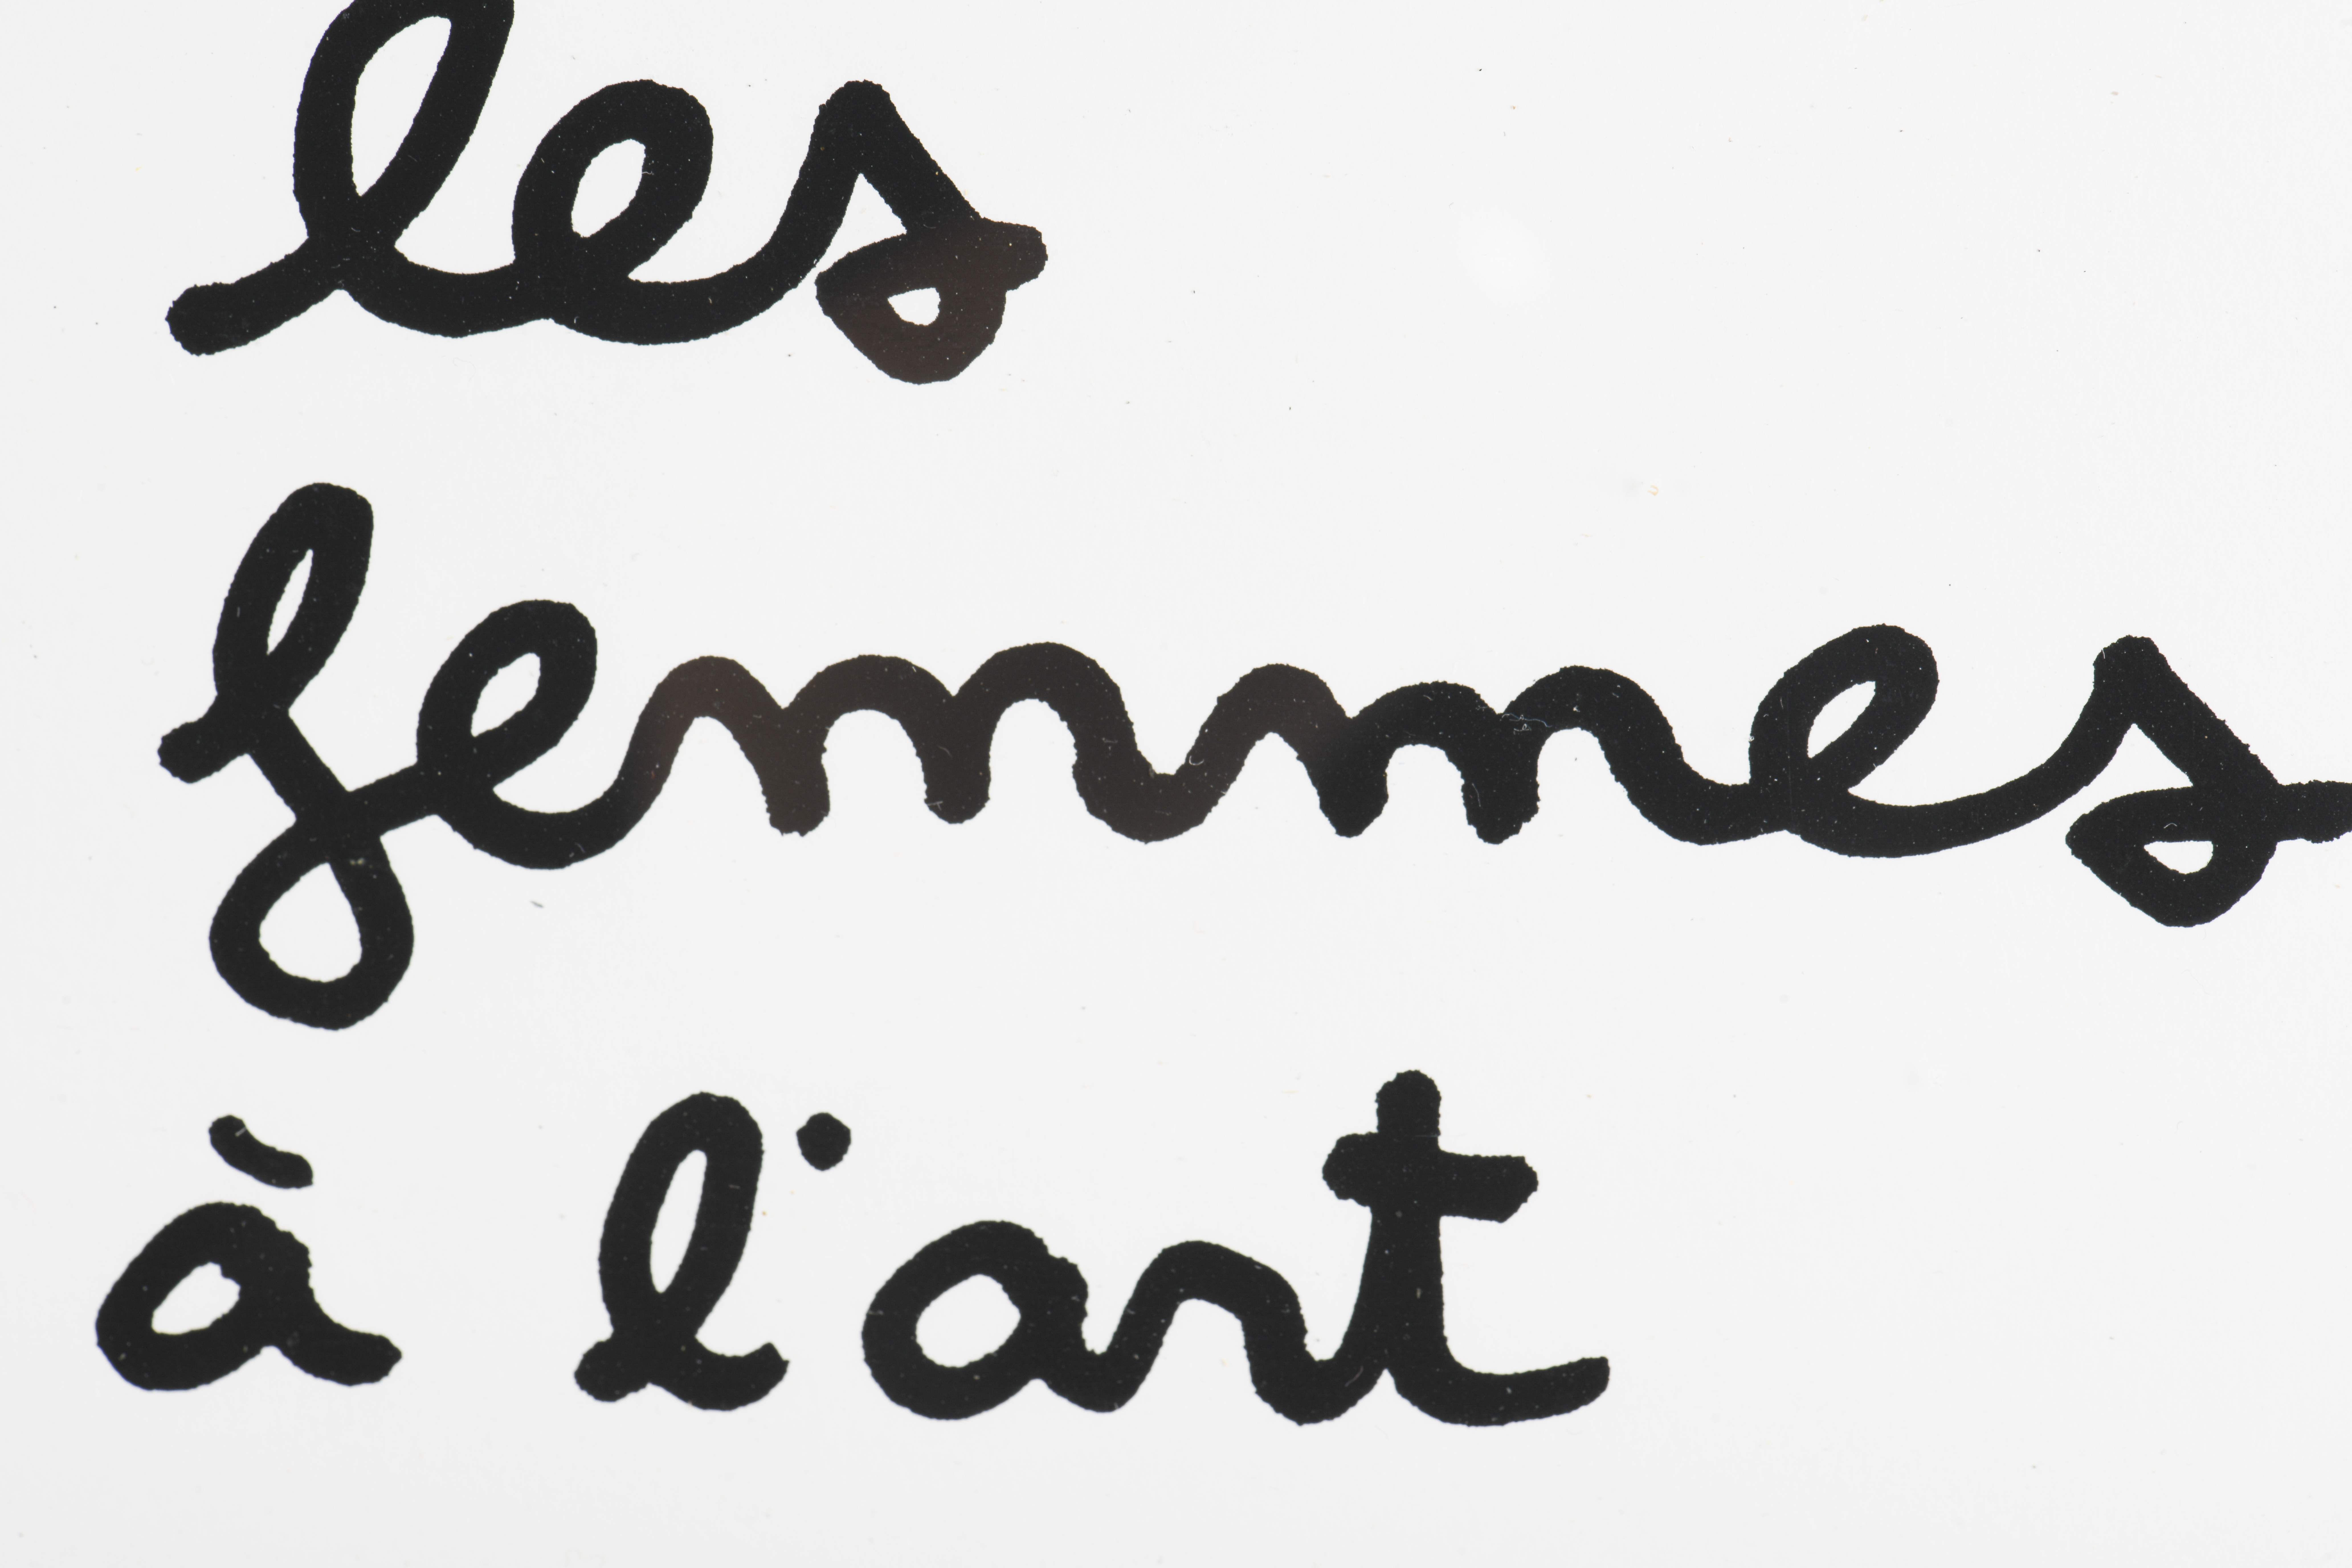 les
femmes
à l'art